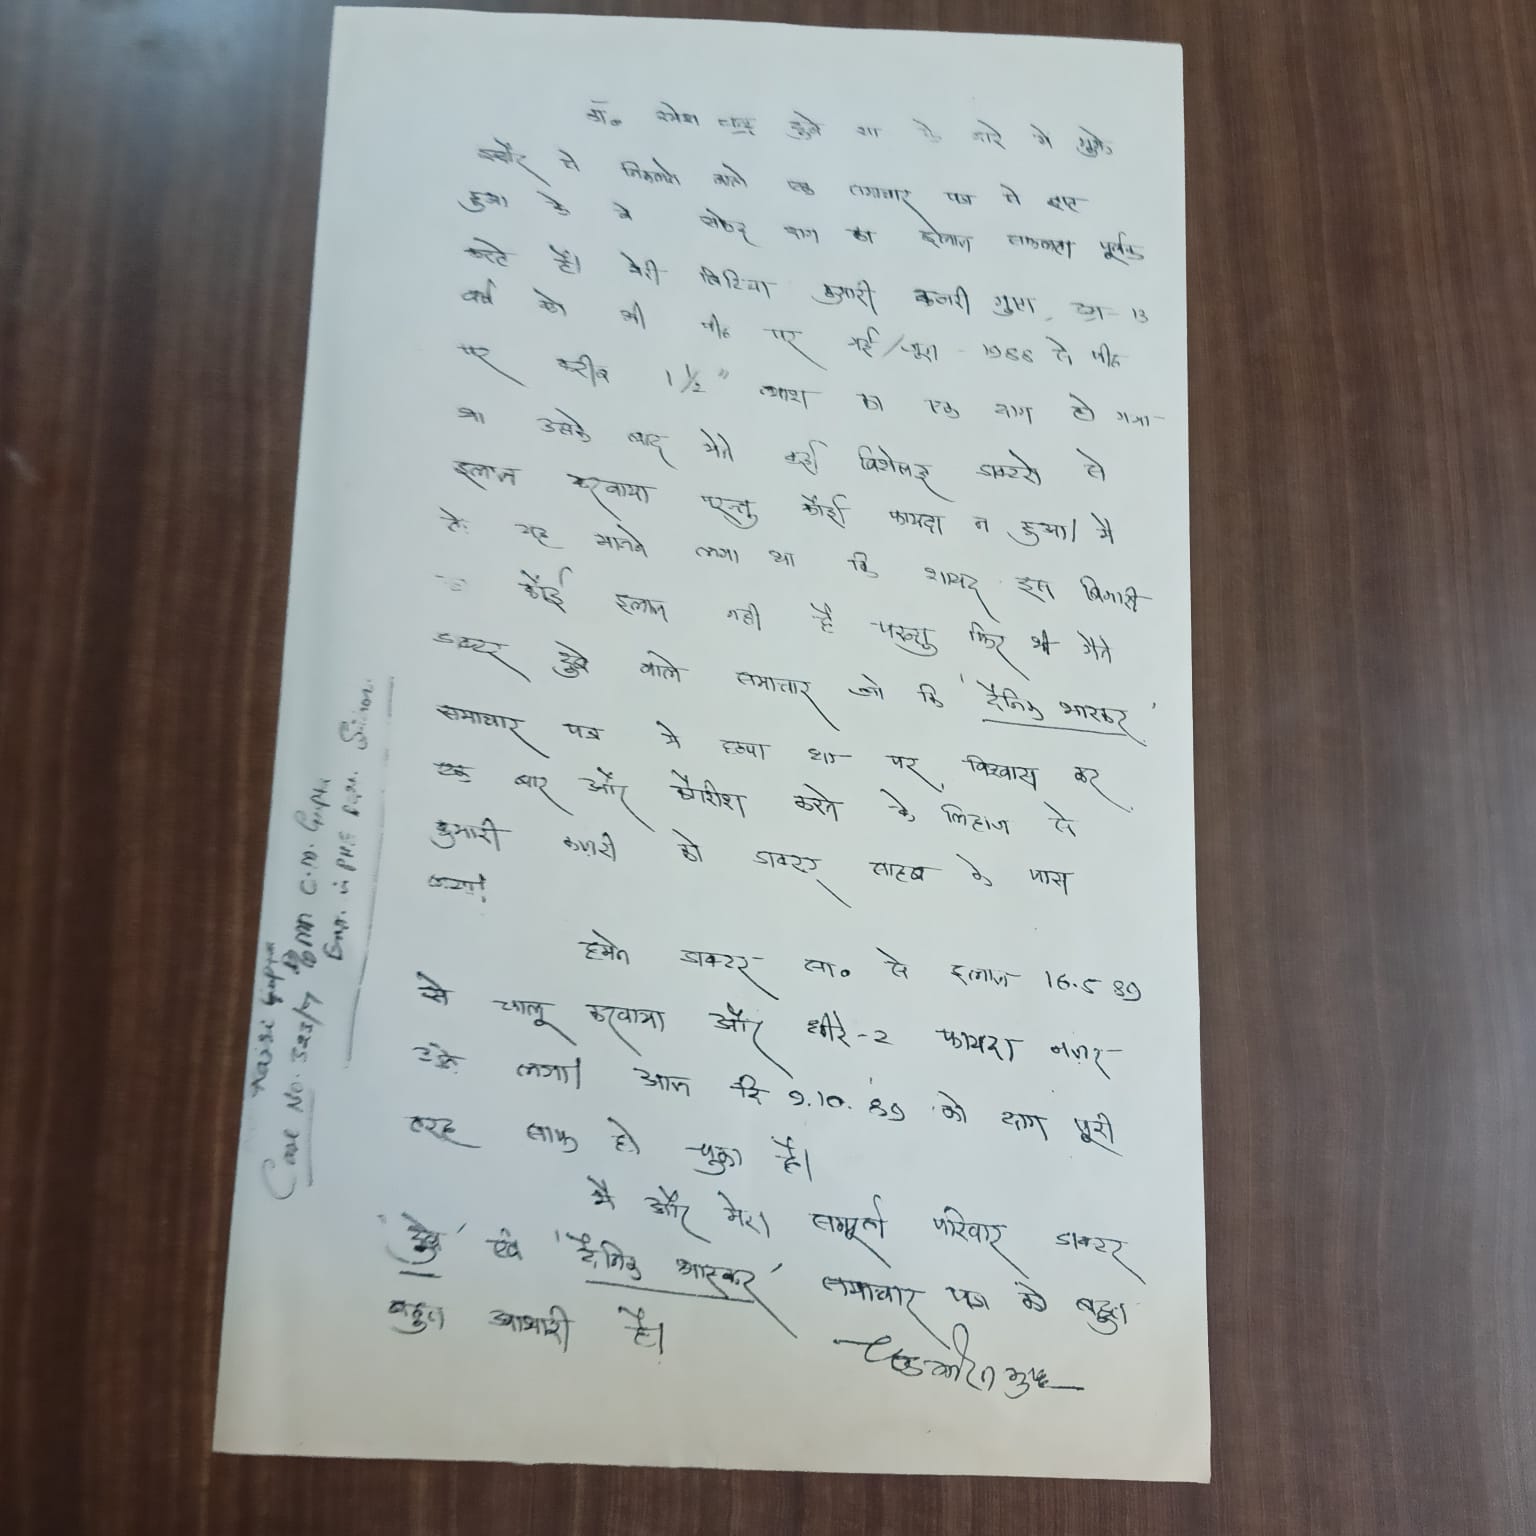 डॉ. रमेश चन्द्र दुबे सा के बारे मे मुझे
इन्दौर से निकलने वाले एक समाचार पत्र से ज्ञात
हुआ के वे सफेद दाग का ईलाज सफलता पूर्वक
करते है। मेरी बिटिया कुमारी कजरी गुप्ता, उम्र - 13
वर्ष को भी पीठ पर मई/जून - 1988 से पीठ
पर करीब 1 1/2" व्यास का एक दाग हो गया
था उसके बाद मैने कई विशेषज्ञ डाक्टरो से
इलाज करवाया परन्तु कोई फायदा न हुआ। मै
तो यह मानने लगा था कि शायद इस बिमारी
कोई इलाज नही है परन्तु फिर भी मैने
डाक्टर दुबे वाले समाचार जो कि 'दैनिक भास्कर'
समाचार पत्र मे छपा था पर विश्वास कर
एक बार और कोशीश करने के लिहाज से
कुमारी कजरी को डाक्टर साहब के पास
लाया।
हमने डाक्टर सा. से इलाज 16.5 89
से चालू करवाया और धीरे-2 फायदा नज़र
आने लगा। आज दि 9.10.'89 को दाग पूरी
तरह साफ हो चुका है।
मै और मेरा सम्पूर्ण परिवार डाक्टर
'दुबे' एवं 'दैनिक भास्कर' समाचार पत्र के बहुत
बहुत आभारी है।
Kajri Gupta
Case No. 323/7
C.M. Gupta